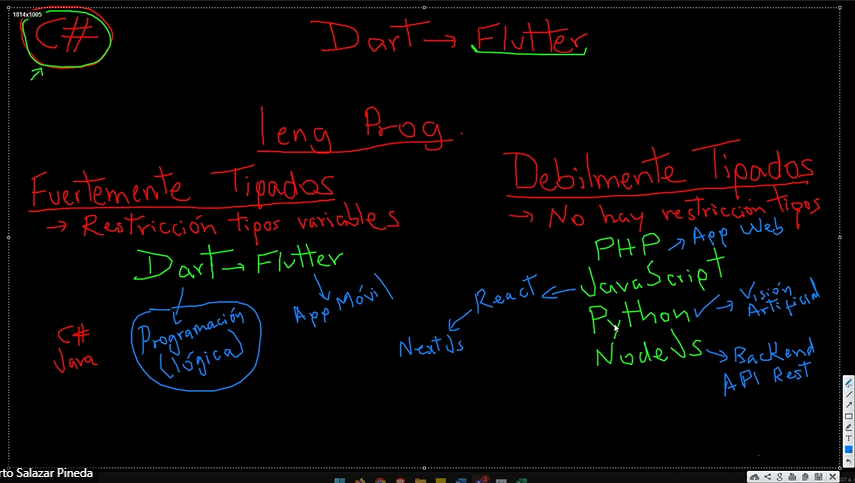 1814x1005
C#
Dart → Flutter
Leng Prog.
Fuertemente Tipados
→ Restricción tipos variables
Dart → Flutter
App Móvil
Programación
(lógica)
C#
Java
Debilmente Tipados
→ No hay restricción tipos
PHP → App Web
JavaScript
React
NextJs
Python
→ Visión
Artificial
NodeJs → Backend
API Rest
rto Salazar Pineda